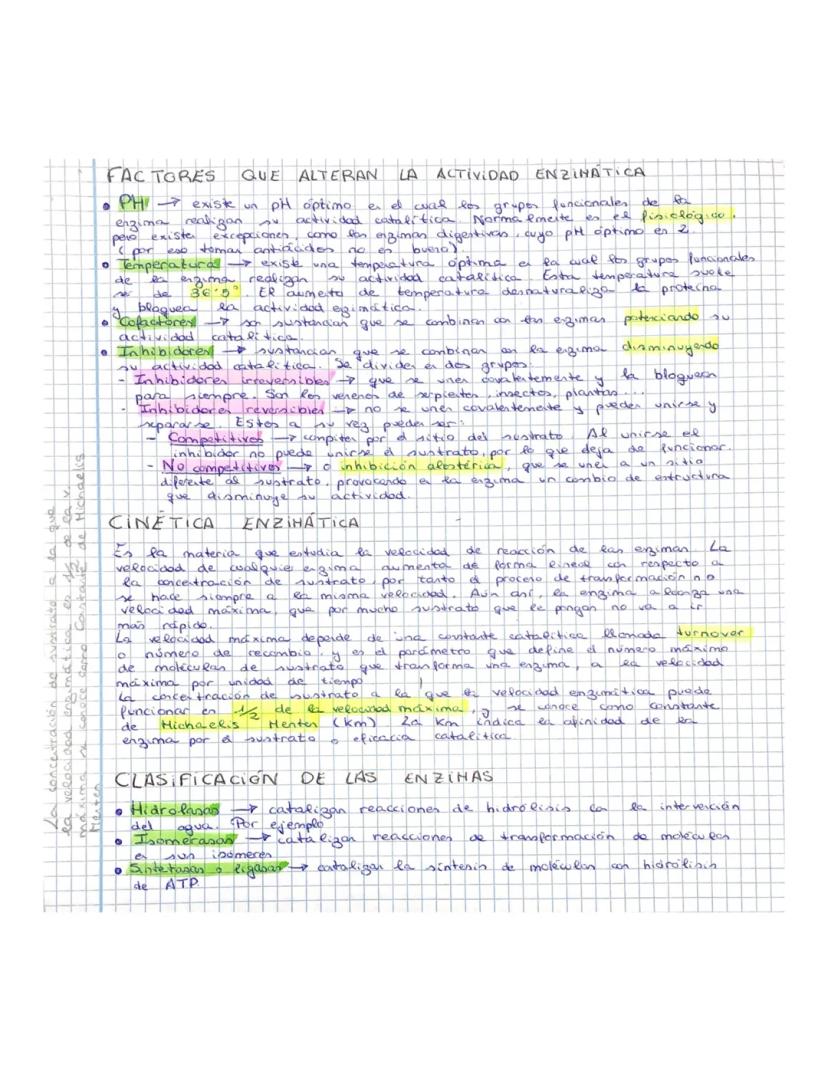 FACTORES QUE ALTERAN LA ACTIVIDAD ENZIMÁTICA
• PH → existe un pH óptimo en el cual los grupos funcionales de la
enzima realizan su actividad catalítica. Normalmente es el fisiológico,
pero existen excepciones, como las enzimas digestivas, cuyo pH óptimo es 2.
(por eso tomar antiácidos no es bueno).
• Temperatura → existe una temperatura óptima en la cual los grupos funcionales
de la enzima realizan su actividad catalítica. Esta temperatura suele
ser de 36'5°. El aumento de temperatura desnaturaliza la proteína
y bloquea la actividad ezimática.
• Cofactores → son sustancias que se combinan con las enzimas potenciando su
actividad catalítica.
• Inhibidores → sustancias que se combinan con la enzima disminuyendo
su actividad catalítica. Se dividen en dos grupos:
- Inhibidores irreversibles → que se unen covalentemente y la bloquean
para siempre. Son los venenos de serpientes, insectos, plantas...
- Inhibidores reversibles → no se unen covalentemente y pueden unirse y
separarse. Estos a su vez pueden ser:
- Competitivos → compiten por el sitio del sustrato. Al unirse el
inhibidor no puede unirse el sustrato, por lo que deja de funcionar.
- No competitivos → o inhibición alostérica, que se unen a un sitio
diferente al sustrato, provocando en la enzima un cambio de estructura
que disminuye su actividad.
CINÉTICA ENZIMÁTICA
Es la materia que estudia la velocidad de reacción de las enzimas. La
velocidad de cualquier enzima aumenta de forma lineal con respecto a
la concentración de sustrato, por tanto el proceso de transformación no
se hace siempre a la misma velocidad. Aún así, la enzima alcanza una
velocidad máxima, que por mucho sustrato que le pongas no va a ir
más rápido.
La velocidad máxima depende de una constante catalítica llamada turnover
o número de recambio, y es el parámetro que define el número máximo
de moléculas de sustrato que transforma una enzima, a la velocidad
máxima por unidad de tiempo
La concentración de sustrato a la que la velocidad enzimática puede
funcionar en 1/2 de la velocidad máxima, y se conoce como constante
de Michaelis Menten (km) La Km indica la afinidad de la
enzima por el sustrato o eficacia catalítica
La concentración de sustrato a la que
la velocidad enzimática es 1/2 de la v.
máxima se conoce como Constante de Michaelis
Menten
CLASIFICACIÓN DE LAS ENZIMAS
• Hidrolasas → catalizan reacciones de hidrólisis con la intervención
del agua. Por ejemplo
• Isomerasas → catalizan reacciones de transformación de moléculas
en sus isómeros
• Sintetasas o ligasas → catalizan la síntesis de moléculas con hidrólisis
de ATP